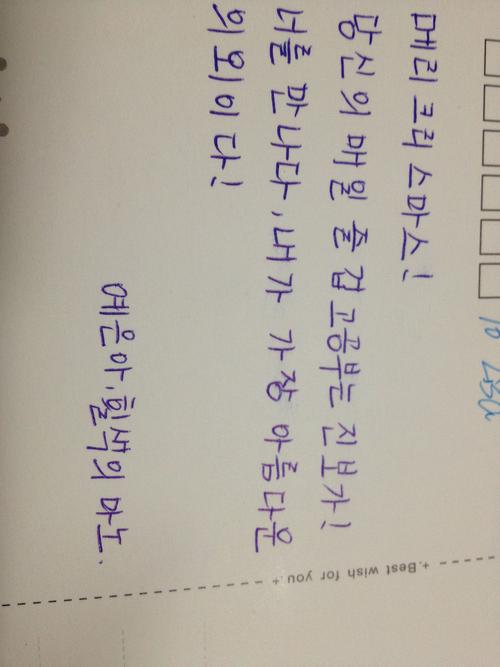 메리 크리스마스!
당신의 매일 즐겁고 공부는 진보가!
너를 만나다, 내가 가장 아름다운
의외이다!
예은아, 흰색의 마노.
+.Best wish for you.+